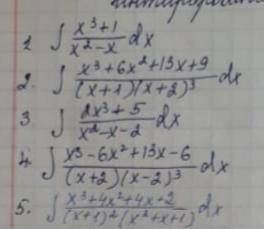 1 ∫ (x³+1)/(x²-x) dx
2. ∫ (x³+6x²+13x+9)/((x+1)(x+2)³) dx
3 ∫ (2x³+5)/(x²-x-2) dx
4. ∫ (x³-6x²+13x-6)/((x+2)(x-2)³) dx
5. ∫ (x³+4x²+4x+2)/((x+1)²(x²+x+1)) dx